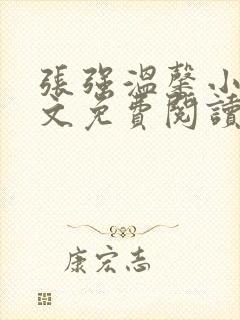 張強溫馨小
文免費閱讀
康宏志